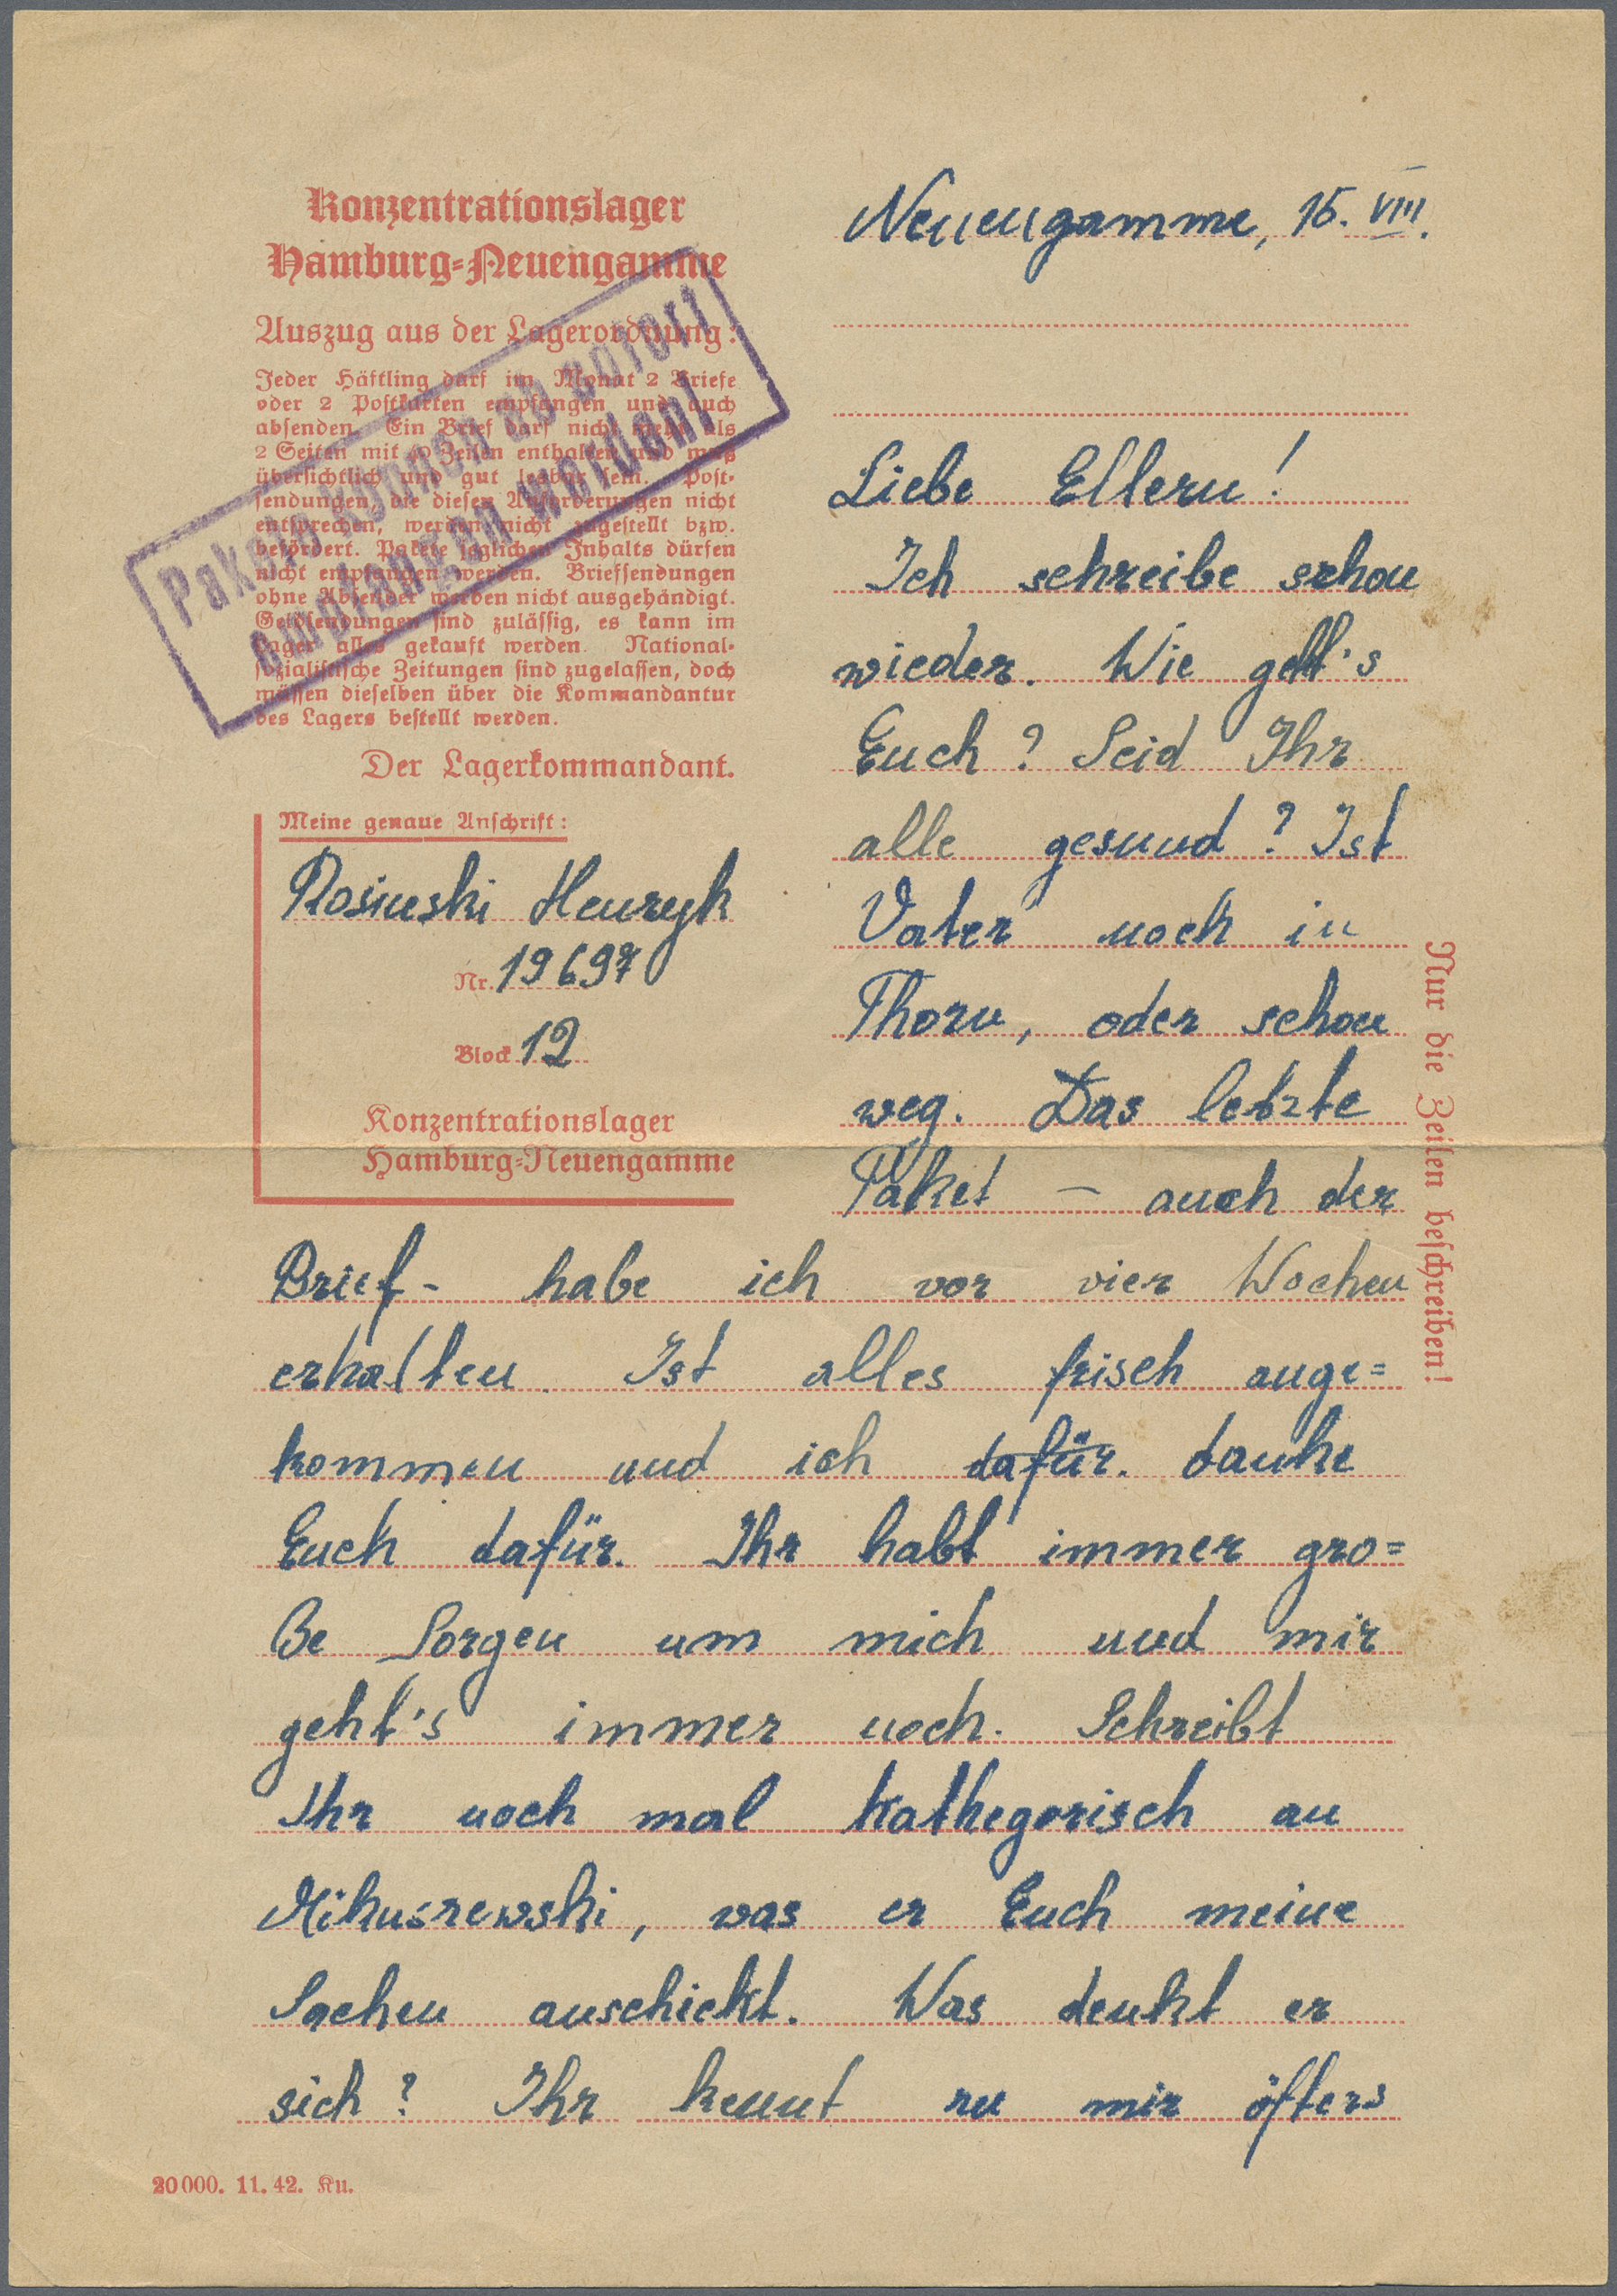 Konzentrationslager
Hamburg-Neuengamme
Auszug aus der Lagerordnung:
Jeder Häftling darf im Monat 2 Briefe
oder 2 Postkarten empfangen und auch
absenden. Ein Brief darf nicht mehr als
2 Seiten mit 40 Zeilen enthalten und muß
übersichtlich und gut lesbar sein. Post-
sendungen, die diesen Anforderungen nicht
entsprechen, werden nicht zugestellt bzw.
befördert. Pakete jeglichen Inhalts dürfen
nicht empfangen werden. Briefsendungen
ohne Absender werden nicht ausgehändigt.
Geldsendungen sind zulässig, es kann im
Lager alles gekauft werden. National-
sozialistische Zeitungen sind zugelassen, doch
müssen dieselben über die Kommandantur
des Lagers bestellt werden.
Der Lagerkommandant.
Pakete können ab sofort
empfangen werden!
Meine genaue Anschrift:
Rosinski Henryk
Nr. 19697
Block 12
Konzentrationslager
Hamburg-Neuengamme
Neuengamme, 15. VIII.
Liebe Eltern!
Ich schreibe schon
wieder. Wie geht's
Euch? Seid Ihr
alle gesund? Ist
Vater noch in
Thorn, oder schon
weg. Das letzte
Paket – auch der
Brief - habe ich vor vier Wochen
erhalten. Ist alles frisch ange=
kommen und ich dafür. danke
Euch dafür. Ihr habt immer gro=
ße Sorgen um mich und mir
geht's immer noch. Schreibt
Ihr noch mal kathegorisch an
Mikuszewski, was er Euch meine
Sachen anschickt. Was denkt er
sich? Ihr kennt zu mir öfters
Nur die Zeilen beschreiben!
20000. 11. 42. Ku.